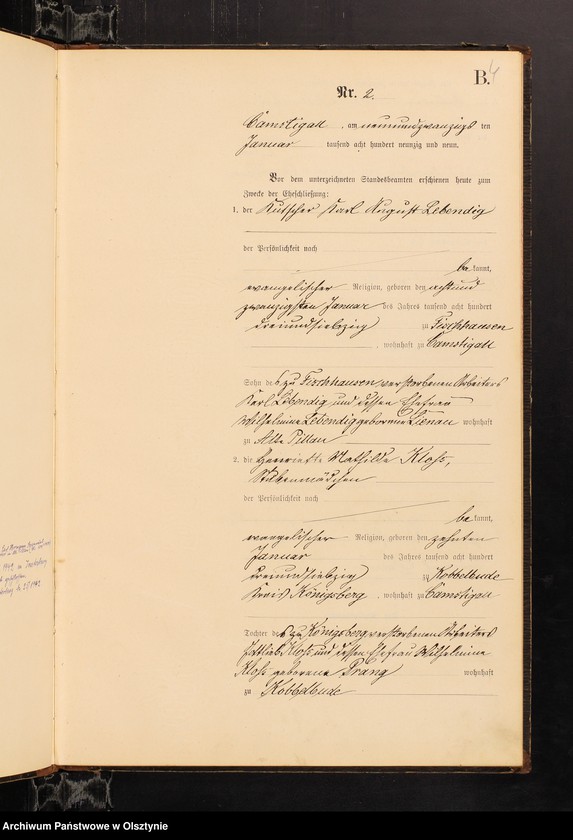 B.
4
Nr. 2.
Camstigall, am neunundzwanzigsten
Januar tausend acht hundert neunzig und neun.
Vor dem unterzeichneten Standesbeamten erschienen heute zum
Zwecke der Eheschließung:
1. der Kutscher Karl August Lebendig
der Persönlichkeit nach
be kannt,
evangelischer Religion, geboren den achtund
zwanzigsten Januar des Jahres tausend acht hundert
dreiundsiebzig zu Fischhausen
, wohnhaft zu Camstigall
Sohn des zu Fischhausen verstorbenen Arbeiters
Karl Lebendig und dessen Ehefrau
Wilhelmine Lebendig geborene Lienau wohnhaft
zu Alte Pillau
2. die Henriette Mathilde Kloß,
Stubenmädchen
der Persönlichkeit nach
be kannt,
evangelischer Religion, geboren den zehnten
Januar des Jahres tausend acht hundert
dreiundsiebzig zu Kobbelbude
Kreis Königsberg, wohnhaft zu Camstigall
Tochter des zu Königsberg verstorbenen Arbeiters
Gottlieb Kloß und dessen Ehefrau Wilhelmine
Kloß geborene Prang wohnhaft
zu Kobbelbude
Archiwum Państwowe w Olsztynie